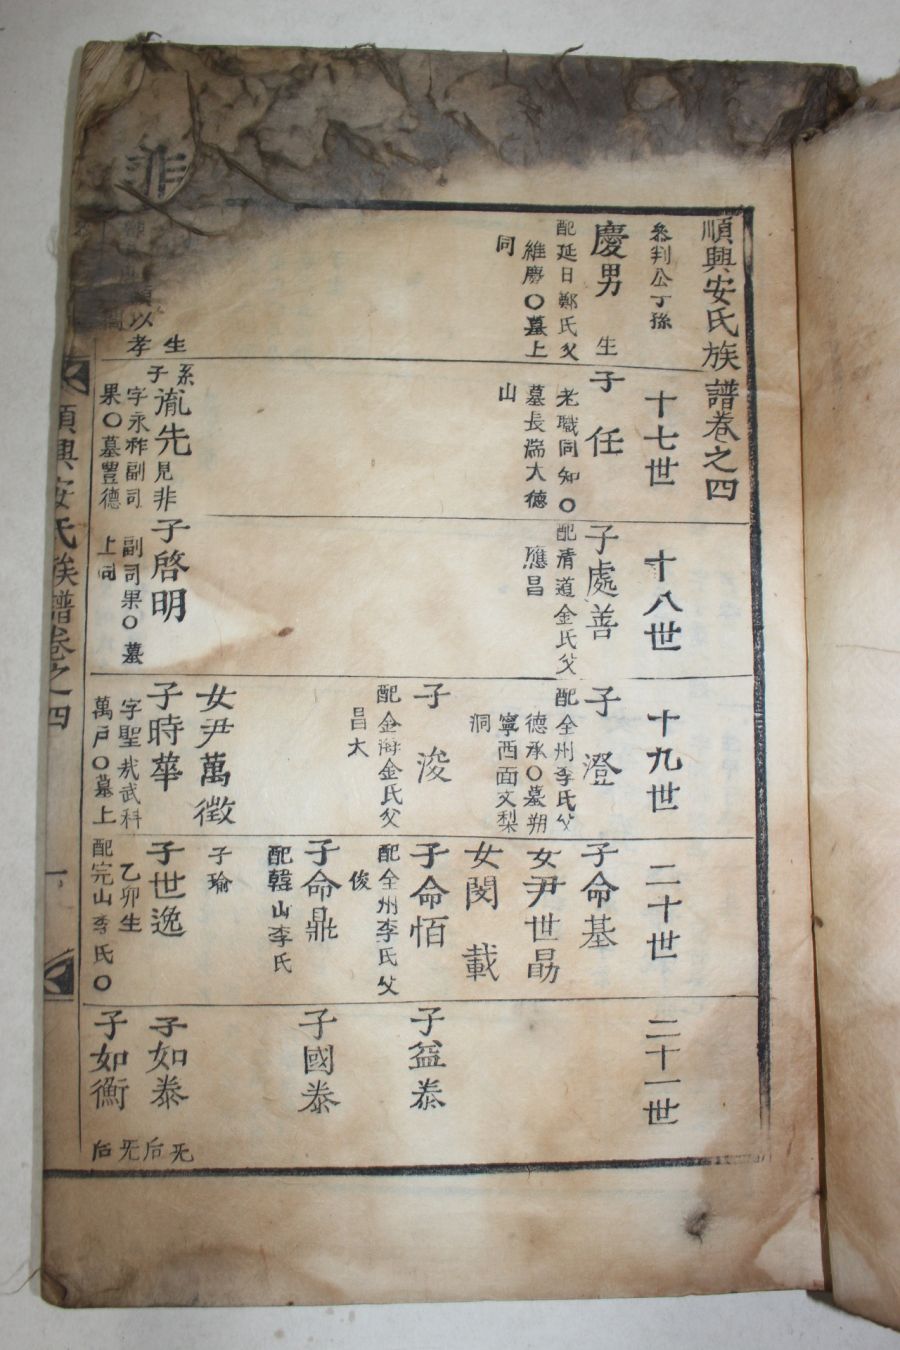 順興安氏族譜卷之四
參判公丁孫
慶男
生
配延日鄭氏父
維慶○墓上
同
十七世
子任
老職同知○
墓長湍大德
山
系
子
胤先見非
字永祚副司
果○墓豊德
十八世
子處善
配淸道金氏父
應昌
子啓明
副司果○墓
上同
十九世
子澄
配全州李氏父
德承○墓朔
寧西面文梨
洞
子浚
配金海金氏父
昌大
女尹萬徵
子時華
字聖哉武科
萬戶○墓上
二十世
子命基
女尹世勗
女閔載
子命恒
配全州李氏父
俊
子命鼎
配韓山李氏
子瑜
子世逸
乙卯生
配完山李氏○
二十一世
子益泰
子國泰
子如泰
无后
子如衡
无后
以孝
生
順興安氏族譜卷之四
一